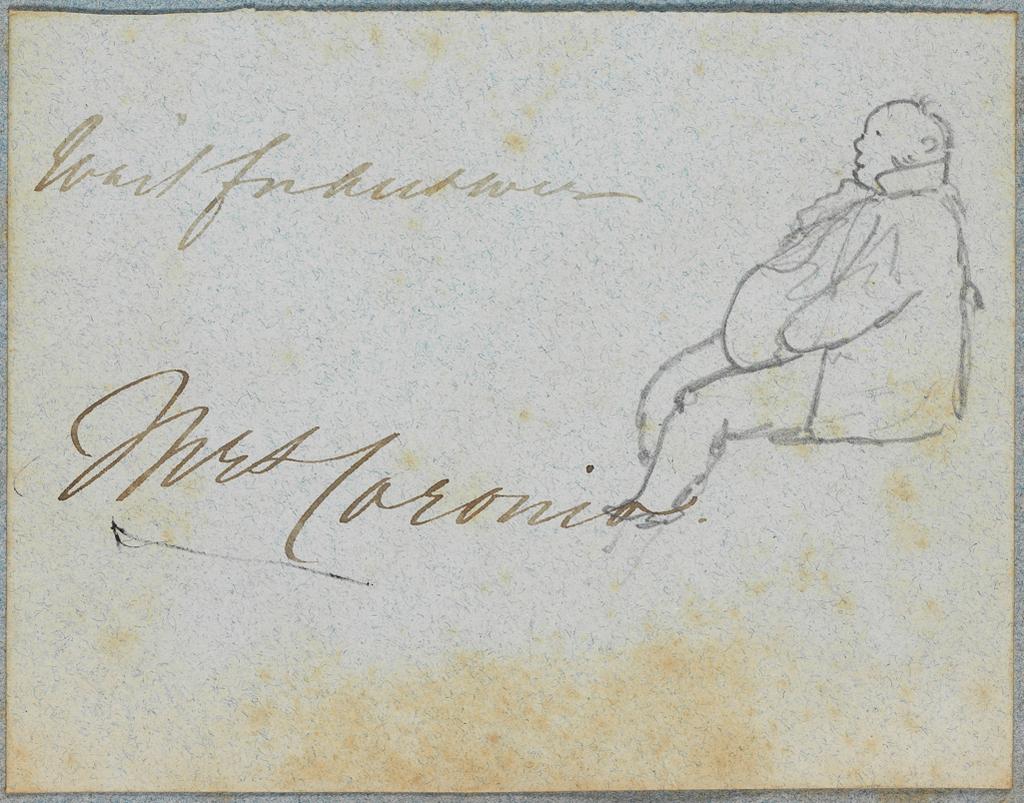 Wait for answer
Mrs Coronio.